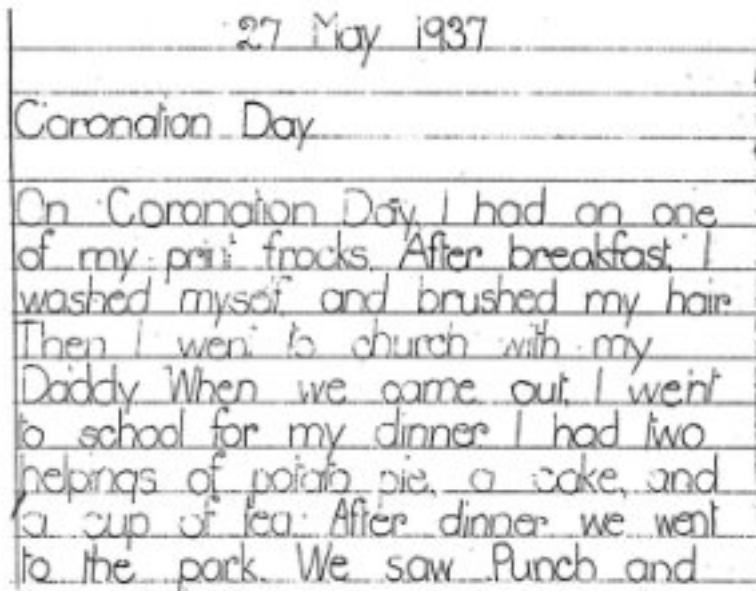 27 May 1937
Coronation Day
On Coronation Day, I had on one
of my print frocks. After breakfast, I
washed myself and brushed my hair.
Then I went to church with my
Daddy. When we came out, I went
to school for my dinner. I had two
helpings of potato pie, a cake, and
a cup of tea. After dinner we went
to the park. We saw Punch and